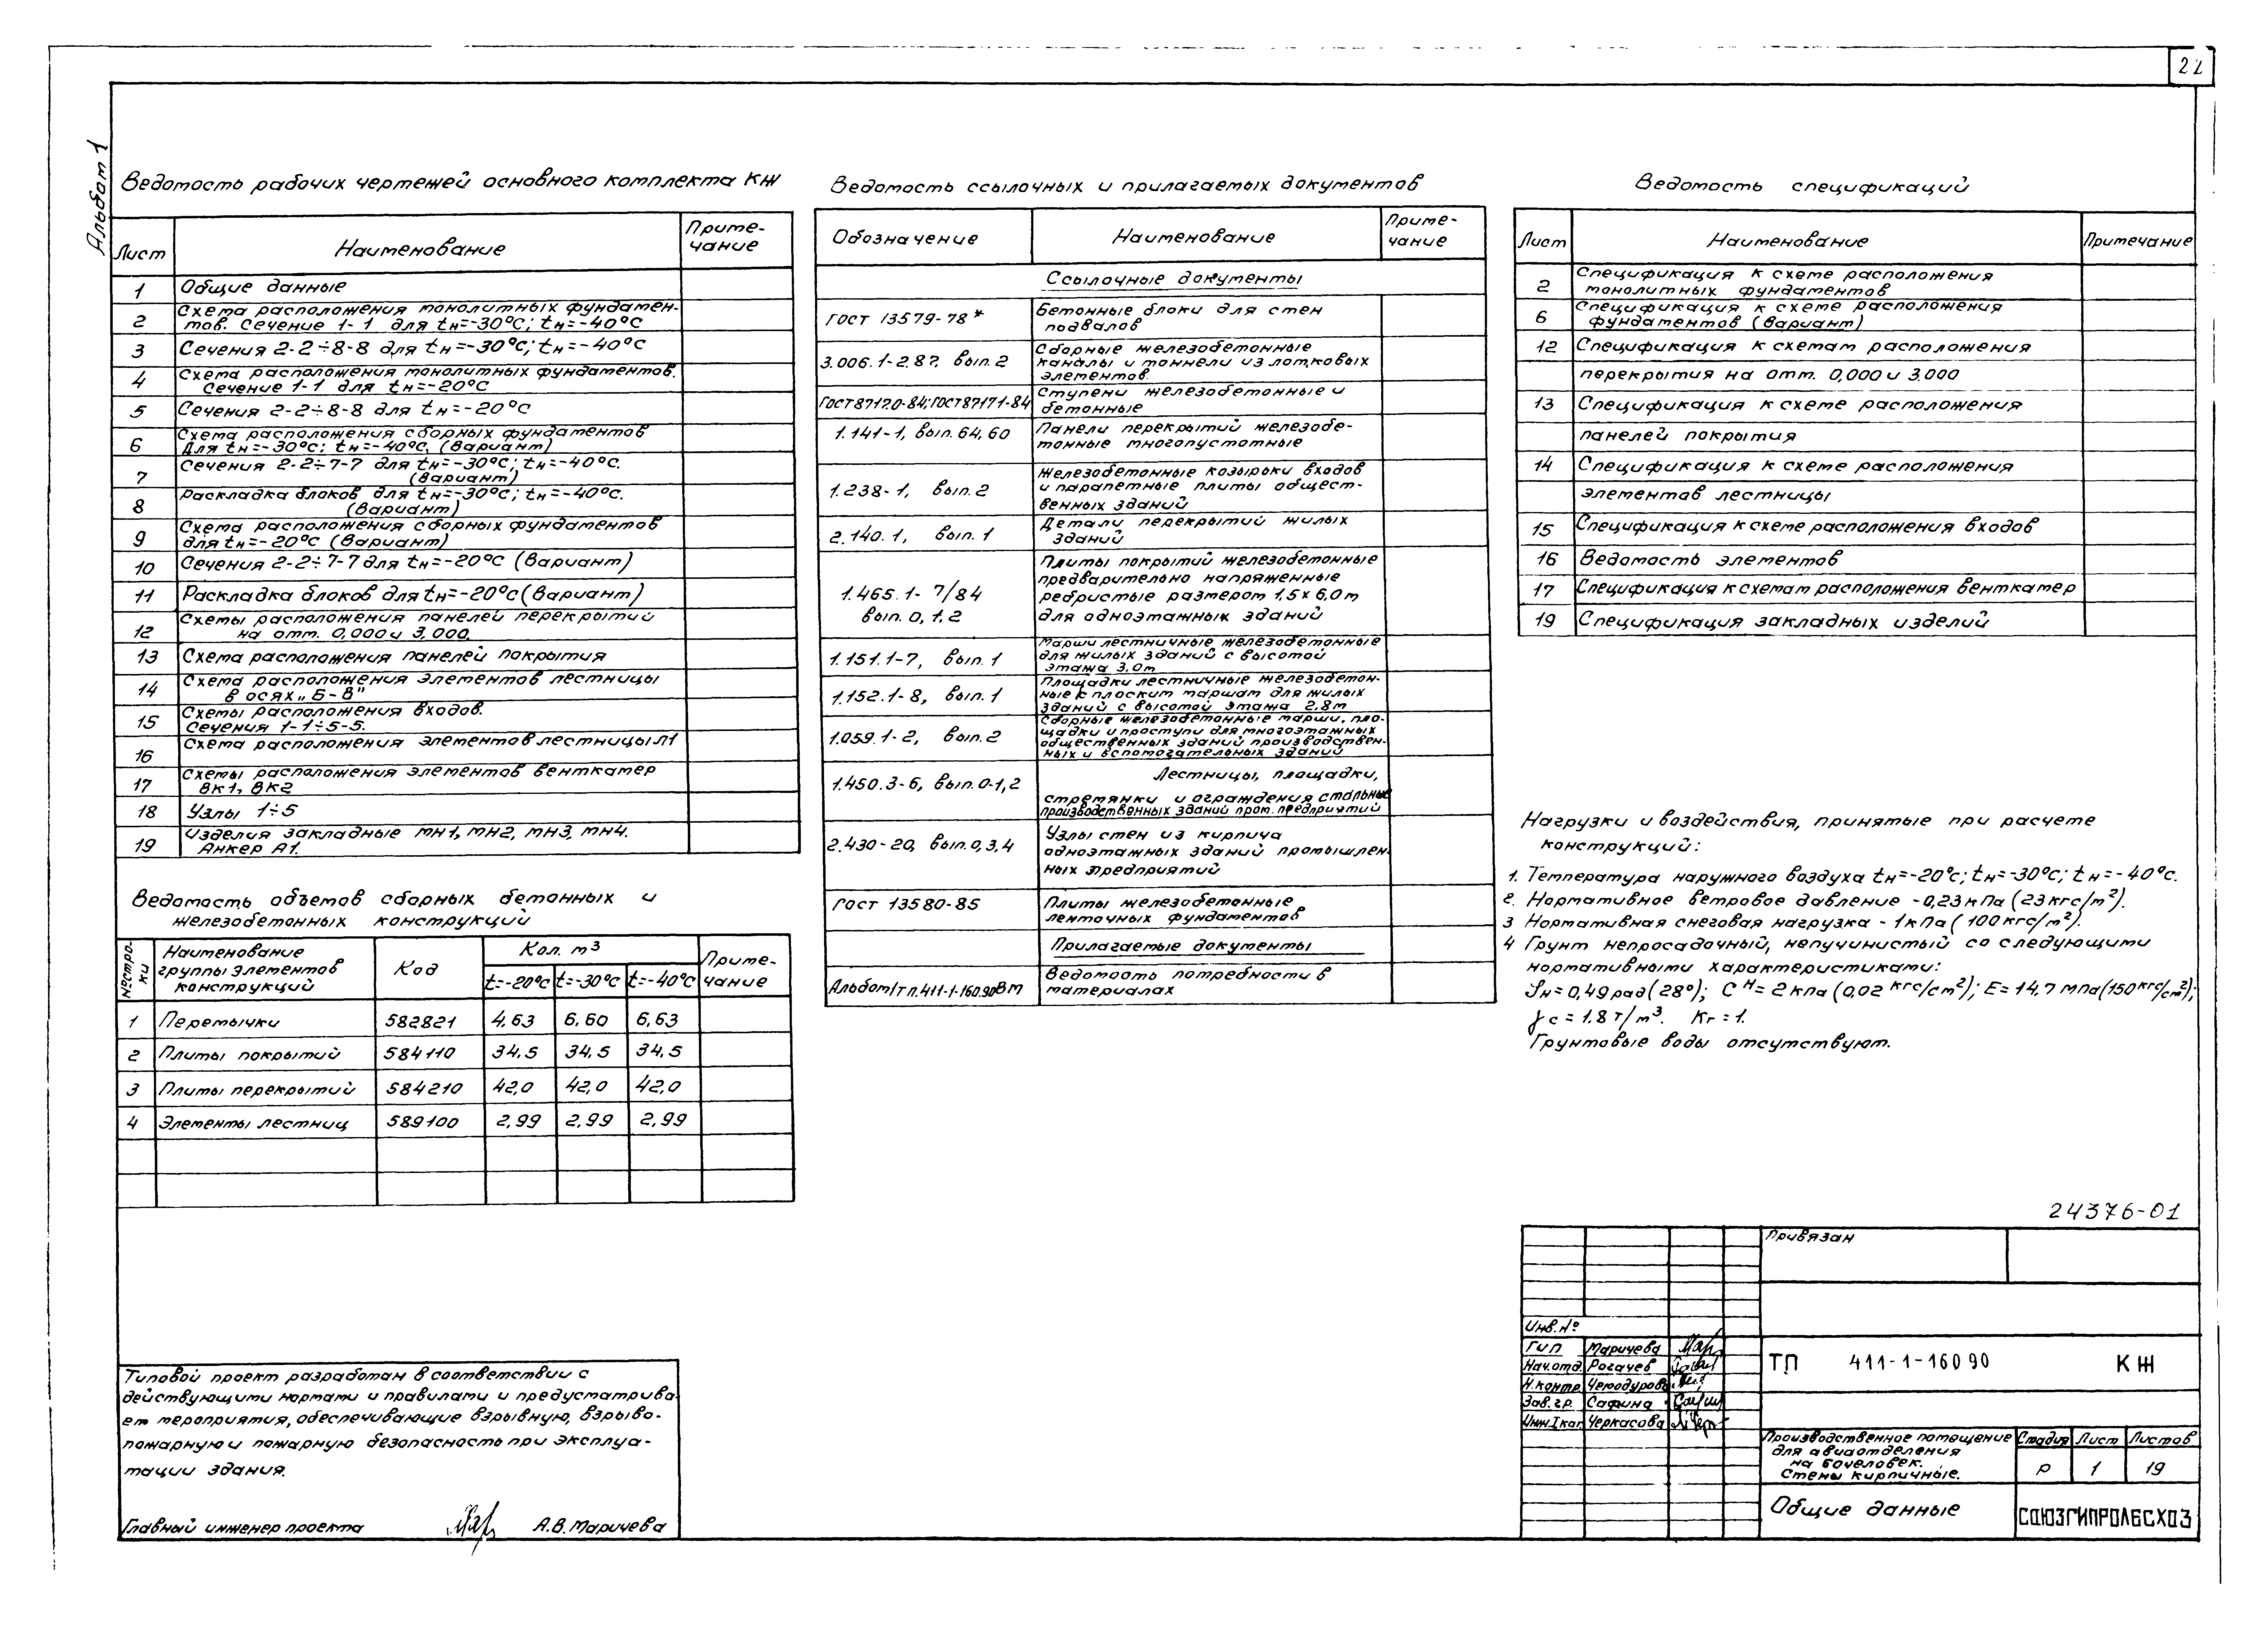 22
Альбом 1
Ведомость рабочих чертежей основного комплекта КЖ
Лист Наименование Приме-
чание
1 Общие данные
2 Схема расположения монолитных фундамен-
тов. Сечение 1-1 для tн=-30°С; tн=-40°С
3 Сечения 2-2÷8-8 для tн=-30°С; tн=-40°С
4 Схема расположения монолитных фундаментов.
Сечение 1-1 для tн=-20°С
5 Сечения 2-2÷8-8 для tн=-20°С
6 Схема расположения сборных фундаментов
для tн=-30°С; tн=-40°С. (Вариант)
7 Сечения 2-2÷7-7 для tн=-30°С; tн=-40°С.
(Вариант)
8 Раскладка блоков для tн=-30°С; tн=-40°С.
(Вариант)
9 Схема расположения сборных фундаментов
для tн=-20°С (Вариант)
10 Сечения 2-2÷7-7 для tн=-20°С (Вариант)
11 Раскладка блоков для tн=-20°С (Вариант)
12 Схемы расположения панелей перекрытий
на отм. 0,000 и 3,000.
13 Схема расположения панелей покрытия
14 Схема расположения элементов лестницы
в осях „Б-В"
15 Схемы расположения входов.
Сечения 1-1÷5-5.
16 Схема расположения элементов лестницы Л1
17 Схемы расположения элементов венткамер
ВК1, ВК2
18 Узлы 1÷5
19 Изделия закладные МН1, МН2, МН3, МН4.
Анкер А1.
Ведомость объемов сборных бетонных и
железобетонных конструкций
№ стро-
ки Наименование
группы элементов
конструкций Код Кол. м³ Приме-
чание
t=-20°С t=-30°С t=-40°С
1 Перемычки 582821 4,63 6,60 6,63
2 Плиты покрытий 584110 34,5 34,5 34,5
3 Плиты перекрытий 584210 42,0 42,0 42,0
4 Элементы лестниц 589100 2,99 2,99 2,99
Типовой проект разработан в соответствии с
действующими нормами и правилами и предусматрива-
ет мероприятия, обеспечивающие взрывную, взрыво-
пожарную и пожарную безопасность при эксплуа-
тации здания.
Главный инженер проекта А.В. Маричева
Ведомость ссылочных и прилагаемых документов
Обозначение Наименование Приме-
чание
Ссылочные документы
ГОСТ 13579-78* Бетонные блоки для стен
подвалов
3.006.1-2.87, вып. 2 Сборные железобетонные
каналы и тоннели из лотковых
элементов.
ГОСТ 87170-84; ГОСТ 87171-84 Ступени железобетонные и
бетонные
1.141-1, вып. 64, 60 Панели перекрытий железобе-
тонные многопустотные
1.238-1, вып. 2 Железобетонные козырьки входов
и парапетные плиты общест-
венных зданий
2.140.1, вып. 1 Детали перекрытий жилых
зданий
1.465.1-7/84
вып. 0, 1, 2 Плиты покрытий железобетонные
предварительно напряженные
ребристые размером 1,5х6,0м
для одноэтажных зданий
1.151.1-7, вып. 1 Марши лестничные железобетонные
для жилых зданий с высотой
этажа 3,0м
1.152.1-8, вып. 1 Площадки лестничные железобетон-
ные к плоским маршам для жилых
зданий с высотой этажа 2,8м
1.059.1-2, вып. 2 Сборные железобетонные марши, пло-
щадки и проступи для многоэтажных
общественных зданий производствен-
ных и вспомогательных зданий
1.450.3-6, вып. 0-1,2 Лестницы, площадки,
стремянки и ограждения стальные
производственных зданий пром. предприятий
2.430-20, вып. 0, 3, 4 Узлы стен из кирпича
одноэтажных зданий промышлен-
ных предприятий
ГОСТ 13580-85 Плиты железобетонные
ленточных фундаментов
Прилагаемые документы
Альбом / т.п. 411-1-160.90 ВМ Ведомость потребности в
материалах
Ведомость спецификаций
Лист Наименование Примечание
2 Спецификация к схеме расположения
монолитных фундаментов
6 Спецификация к схеме расположения
фундаментов (Вариант)
12 Спецификация к схемам расположения
перекрытия на отм. 0,000 и 3.000
13 Спецификация к схеме расположения
панелей покрытия
14 Спецификация к схеме расположения
элементав лестницы
15 Спецификация к схеме расположения входов
16 Ведомость элементов
17 Спецификация к схемам расположения венткамер
19 Спецификация закладных изделий
Нагрузки и воздействия, принятые при расчете
конструкций:
1. Температура наружного воздуха tн=-20°С; tн=-30°С; tн=-40°С.
2. Нормативное ветровое давление -0,23 кПа (23 кгс/м²).
3 Нормативная снеговая нагрузка - 1 кПа (100 кгс/м²).
4 Грунт непросадочный, непучинистый со следующими
нормативными характеристиками:
φн=0,49 рад (28°); Сн=2 кПа (0,02 кгс/см²); Е=14,7 МПа (150 кгс/см²);
γс=1.8 т/м³. Кг=1.
Грунтовые воды отсутствуют.
24376-01
Привязан
Инв. №
ГИП Маричева
Нач. отд. Рогачев
Н. контр. Чемодурова
Зав. гр. Сафина
Инж. I кат. Черкасова
ТП 411-1-160 90 КЖ
Производственное помещение
для авиаотделения
на 60 человек.
Стены кирпичные.
Стадия Лист Листов
Р 1 19
Общие данные
СОЮЗГИПРОЛЕСХОЗ